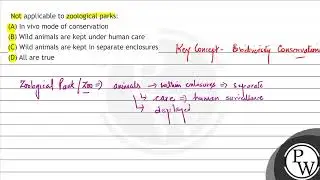 Not applicable to zoological parks:
(A) In vivo mode of conservation
(B) Wild animals are kept under human care
(C) Wild animals are kept in separate enclosures
(D) All are true
Key Concept - Biodiversity Conservation
Zoological Park / Zoo ⇒ animals → within enclosures ⇒ separate
↳ care ⇒ human surveillance
↳ displayed
PW